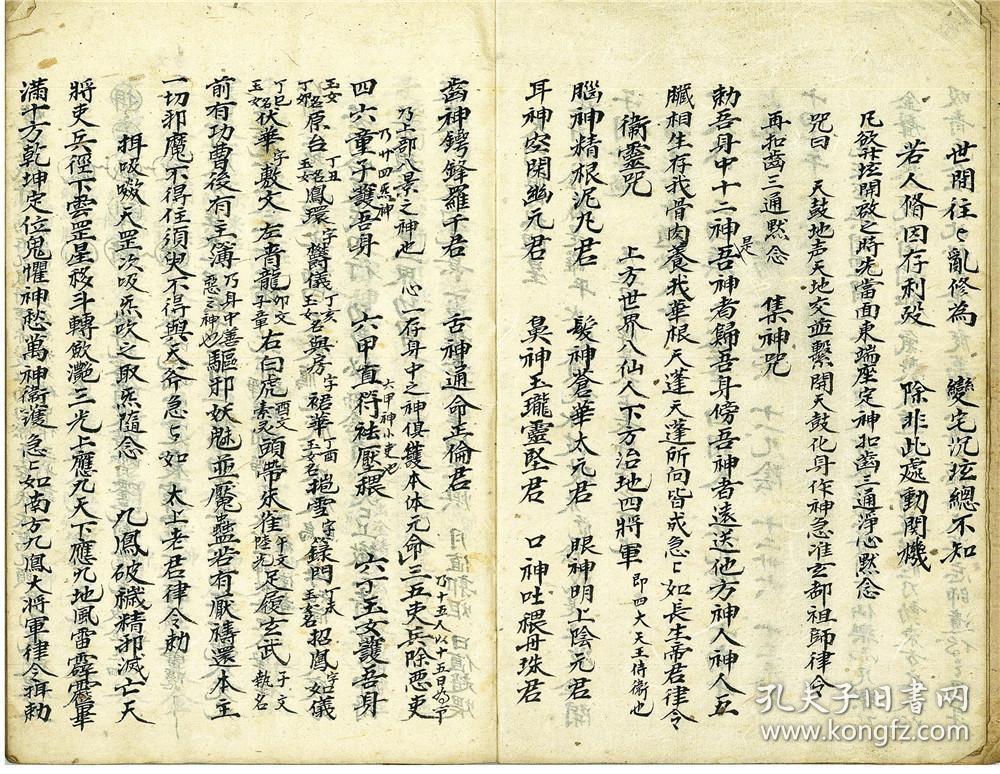 世間往〻亂修為　變宅沉玹總不知
若人脩因存利殁　除非此處動関機
凡欲 玹開啟之時先當面東端座定神扣齒三通淨心黙念
咒曰　天鼓地声天地交並繫関天鼓化身作神急准玄都祖師律令
再扣齒三通黙念　集神咒
勅吾身中十二神是吾神者歸吾身傍吾神者遠送他方神人神人五
臟相生存我骨肉養我華根天蓬天蓬所问皆成急〻如長生帝君律令
衛靈咒　上方世界八仙人下方治地四將軍即四大天王侍衛也
腦神精根泥丸君　髮神蒼華太元君　眼神明上陰元君
耳神空閑幽元君　鼻神玉瓏靈堅君　口神吐 丹珠君
齒神鍔鋒羅千君　舌神通命正倫君
乃上部八景之神也　心一存身中之神俱護本体元命三五吏兵除惡吏乃十五人以十五日為下
四六童子護吾身乃廿四炁神　六甲直符祛壓穢六甲神小吏也　六丁玉女護吾身
玉女丁卯名原台丁丑玉女名鳳環字欝儀丁亥玉女名與房字裙華丁酉玉女名 雪字籙門丁未玉女名招鳳字儀
丁巳玉女名伏華字敷文左青龍卯文子童右白虎酉文素元頭帶朱雀午文陸光足履玄武子文執名
前有功曹後有主簿乃身中善惡之神也驅邪妖魅並魘蠱若有厭禱還本主
一切邪魔不得住須臾不得與天斧急〻如　太上老君律令勅
揖吸嗷天罡次吸炁吹之取炁隨念　九鳳破穢精邪滅亡天
將吏兵徑下雲罡星移斗轉 灔三光上應九天下應九地風雷霹靂畢
滿十方乾坤定位鬼懼神愁萬神衛護急〻如南方九鳳大將軍律令揖勅
孔夫子旧书网
www.kongfz.com